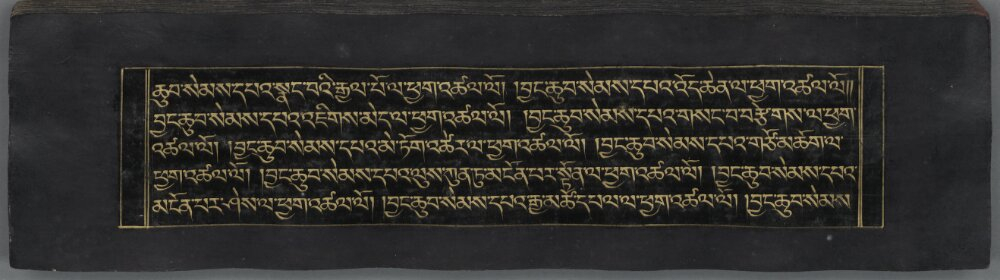 ཆུབ་སེམས་དཔའ་སྣང་བའི་རྒྱལ་པོ་ལ་ཕྱག་འཚལ་ལོ། །བྱང་ཆུབ་སེམས་དཔའ་འོད་ཆེན་ལ་ཕྱག་འཚལ་ལོ།།
བྱང་ཆུབ་སེམས་དཔའ་འཇིགས་མེད་ལ་ཕྱག་འཚལ་ལོ། །བྱང་ཆུབ་སེམས་དཔའ་གསང་བ་བརྩེགས་ལ་ཕྱག་
འཚལ་ལོ། །བྱང་ཆུབ་སེམས་དཔའ་མེ་ཏོག་འཚེར་ལ་ཕྱག་འཚལ་ལོ། །བྱང་ཆུབ་སེམས་དཔའ་གཙོ་མཆོག་ལ་
ཕྱག་འཚལ་ལོ། །བྱང་ཆུབ་སེམས་དཔའ་ལུས་ཀུན་ཏུ་མངོན་པར་སྟོན་ལ་ཕྱག་འཚལ་ལོ། །བྱང་ཆུབ་སེམས་དཔའ་
མངོན་པར་ཤེས་ལ་ཕྱག་འཚལ་ལོ། །བྱང་ཆུབ་སེམས་དཔའ་རྒྱ་མཚོ་དཔལ་ལ་ཕྱག་འཚལ་ལོ། །བྱང་ཆུབ་སེམས